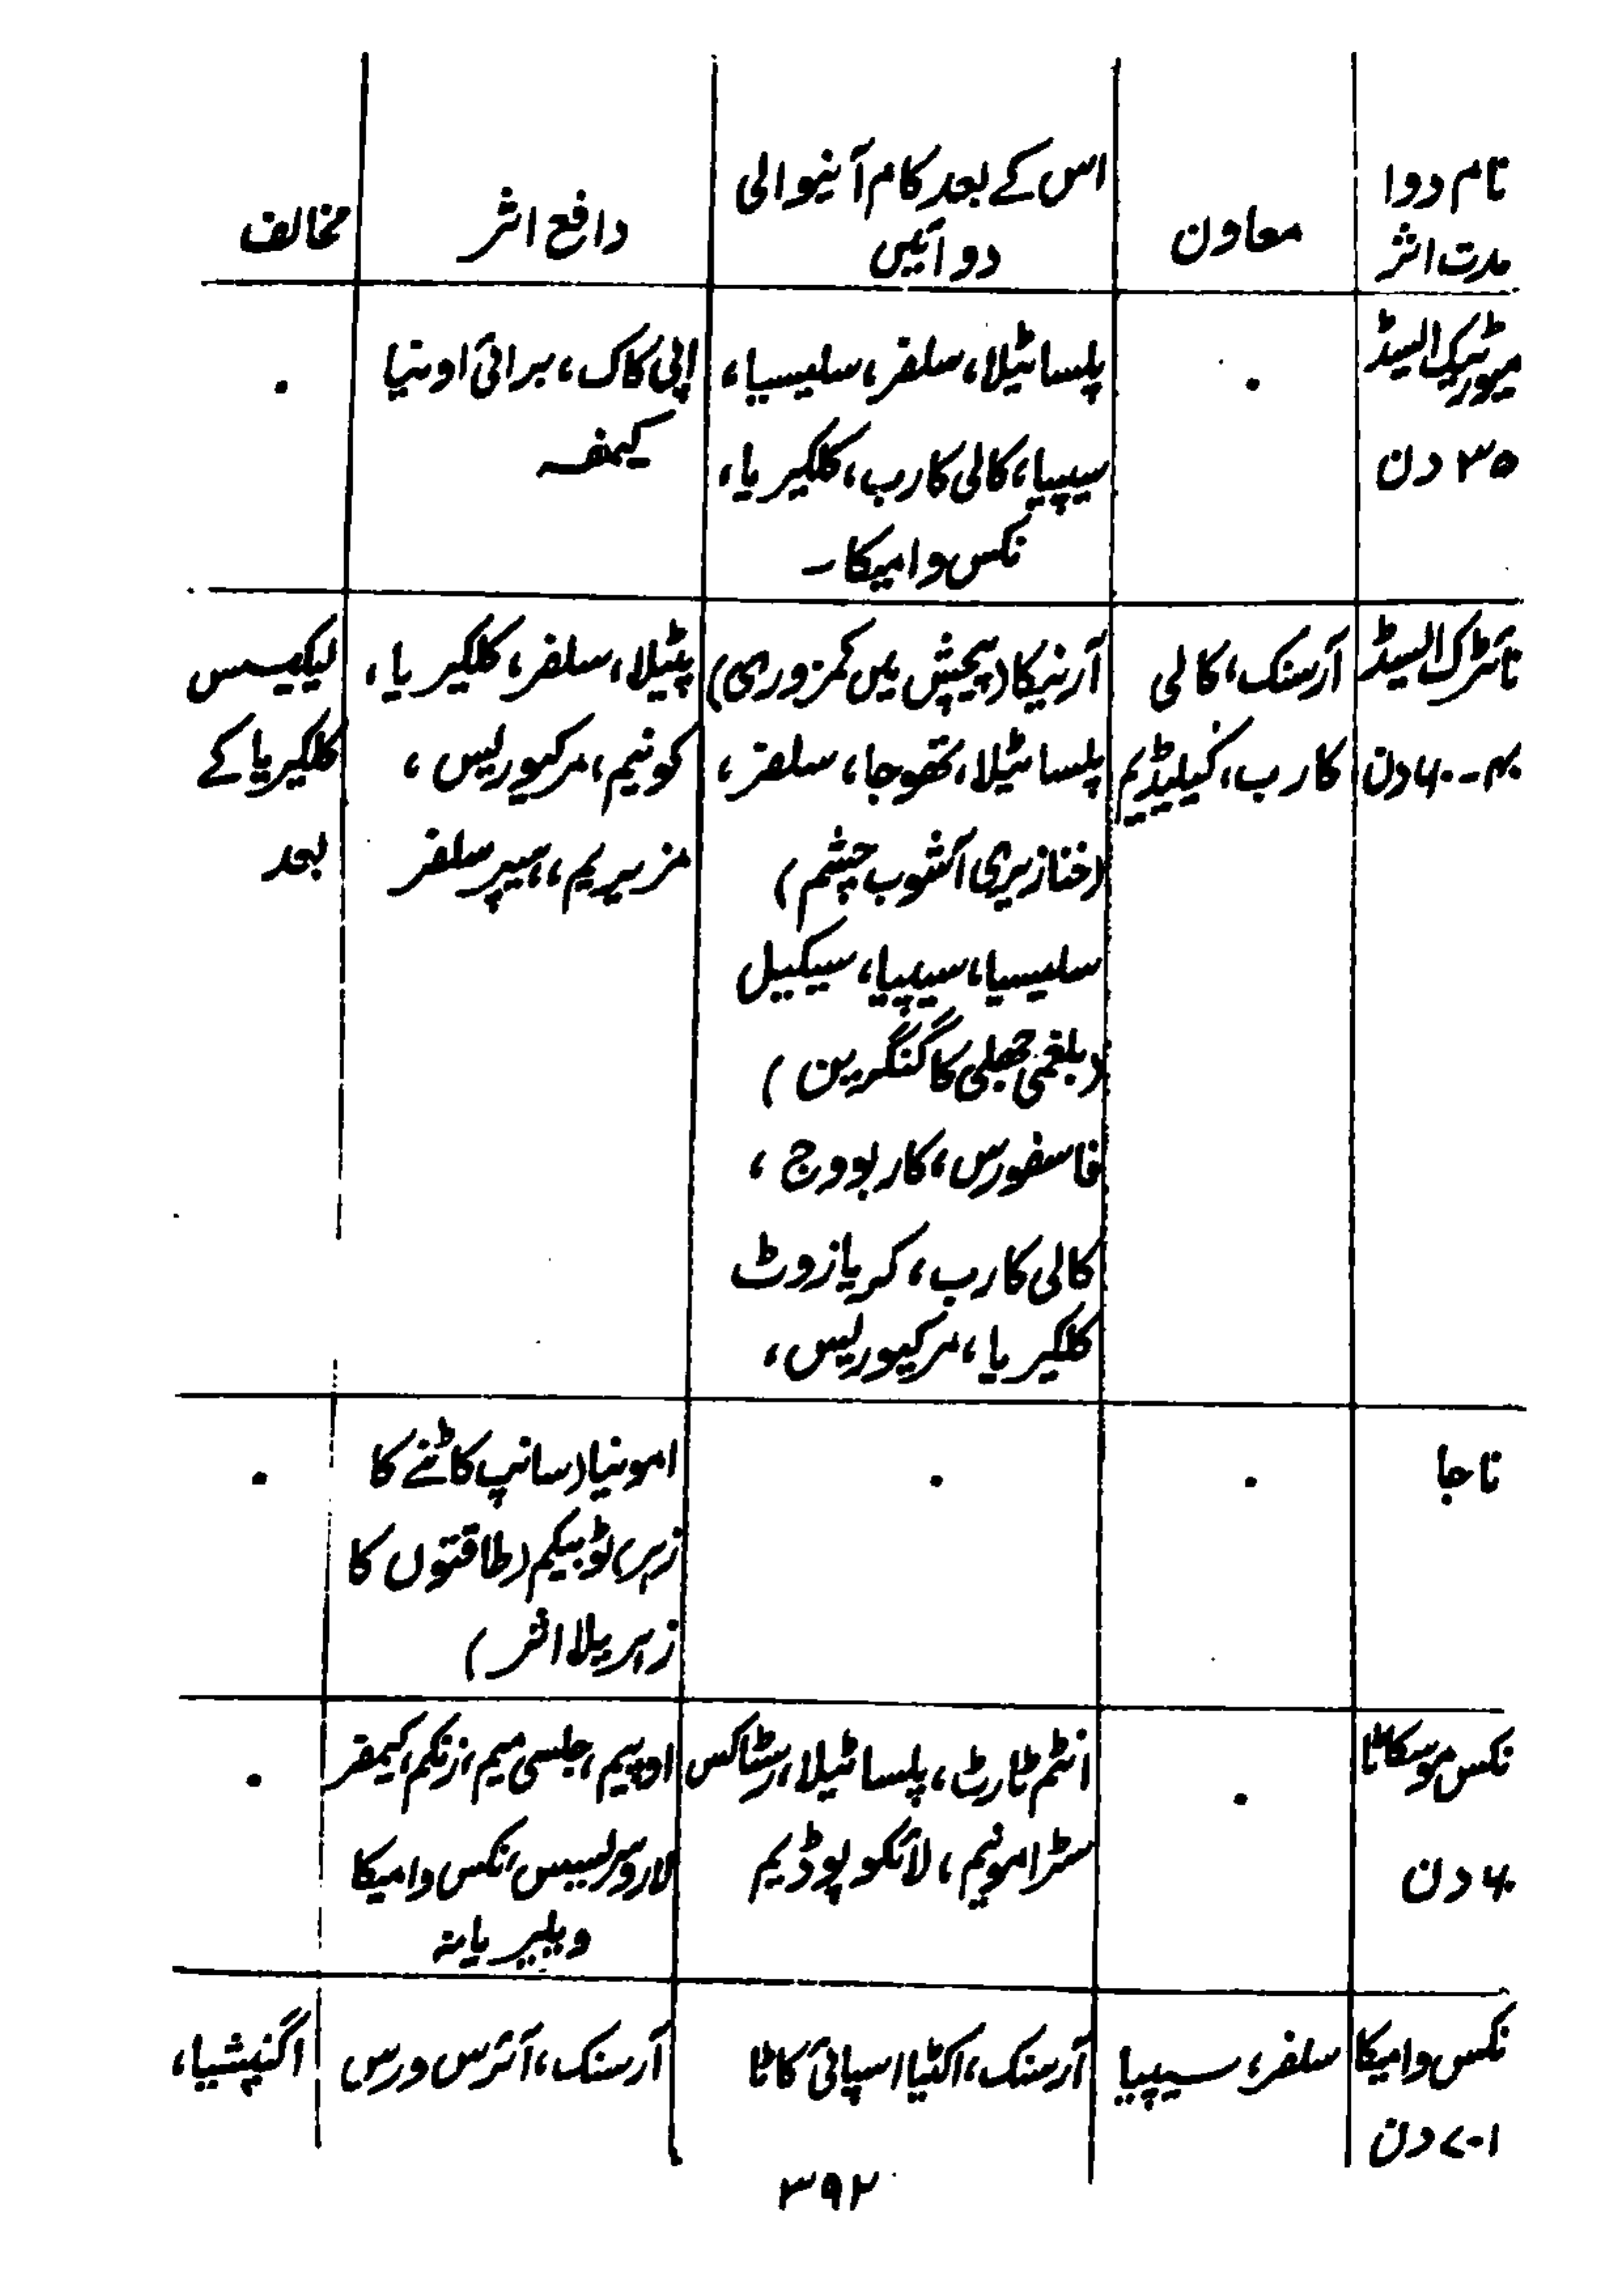 نام دوا
مدت اثر
معاون
اس کے بعد کام آنیوالی
دوائیں
دافع اثر
مخالف
میورٹیک ایسڈ
۳۵ دن
۰
پلساٹیلا، سلفر، سلیسیا،
سیپیا، کالی کارب، کلکیریا،
نکس وامیکا ۔
اپی کاک، برائی اونیا
کیمفر
۰
نائٹرک ایسڈ
۴۰۔۶۰ دن
آرسنک، کالی
کارب، کیلیڈیم
آرنیکا (پیچش میں کمزوری)
پلساٹیلا، تھوجا، سلفر،
(خنازیری آشوب چشم)
سلیسیا، سیپیا، سیکیل
(بلغمی جھلی کا گنگرین)
فاسفورس، کاربووج،
کالی کارب، کریازوٹ
کلکیریا، مرکیورلیس،
پٹیلا، سلفر، کلکیریا،
کونیم، مرکیورلیس،
مزیریم، ہیپر سلفر
لیکیسس
کلکیریا کے
بعد
ناجا
۰
۰
امونیا (سانپ کاٹنے کا
زہر) ٹوبیکم (طاقتوں کا
زہریلا اثر)
۰
نکس موسکاٹا
۶۰ دن
۰
انٹم ٹارٹ، پلساٹیلا، رسٹاکس
سٹرامونیم، لائکوپوڈیم
اوپیم، جلسی میم، زنکم، کیمفر
لاروسریسس، نکس وامیکا
ویلیریانہ
۰
نکس وامیکا
۱۔۷ دن
سلفر، سیپیا
آرسنک، اکٹیا اسپائی کاٹا
آرسنک، آئرس ورس
اگنیشیا،
۳۹۲